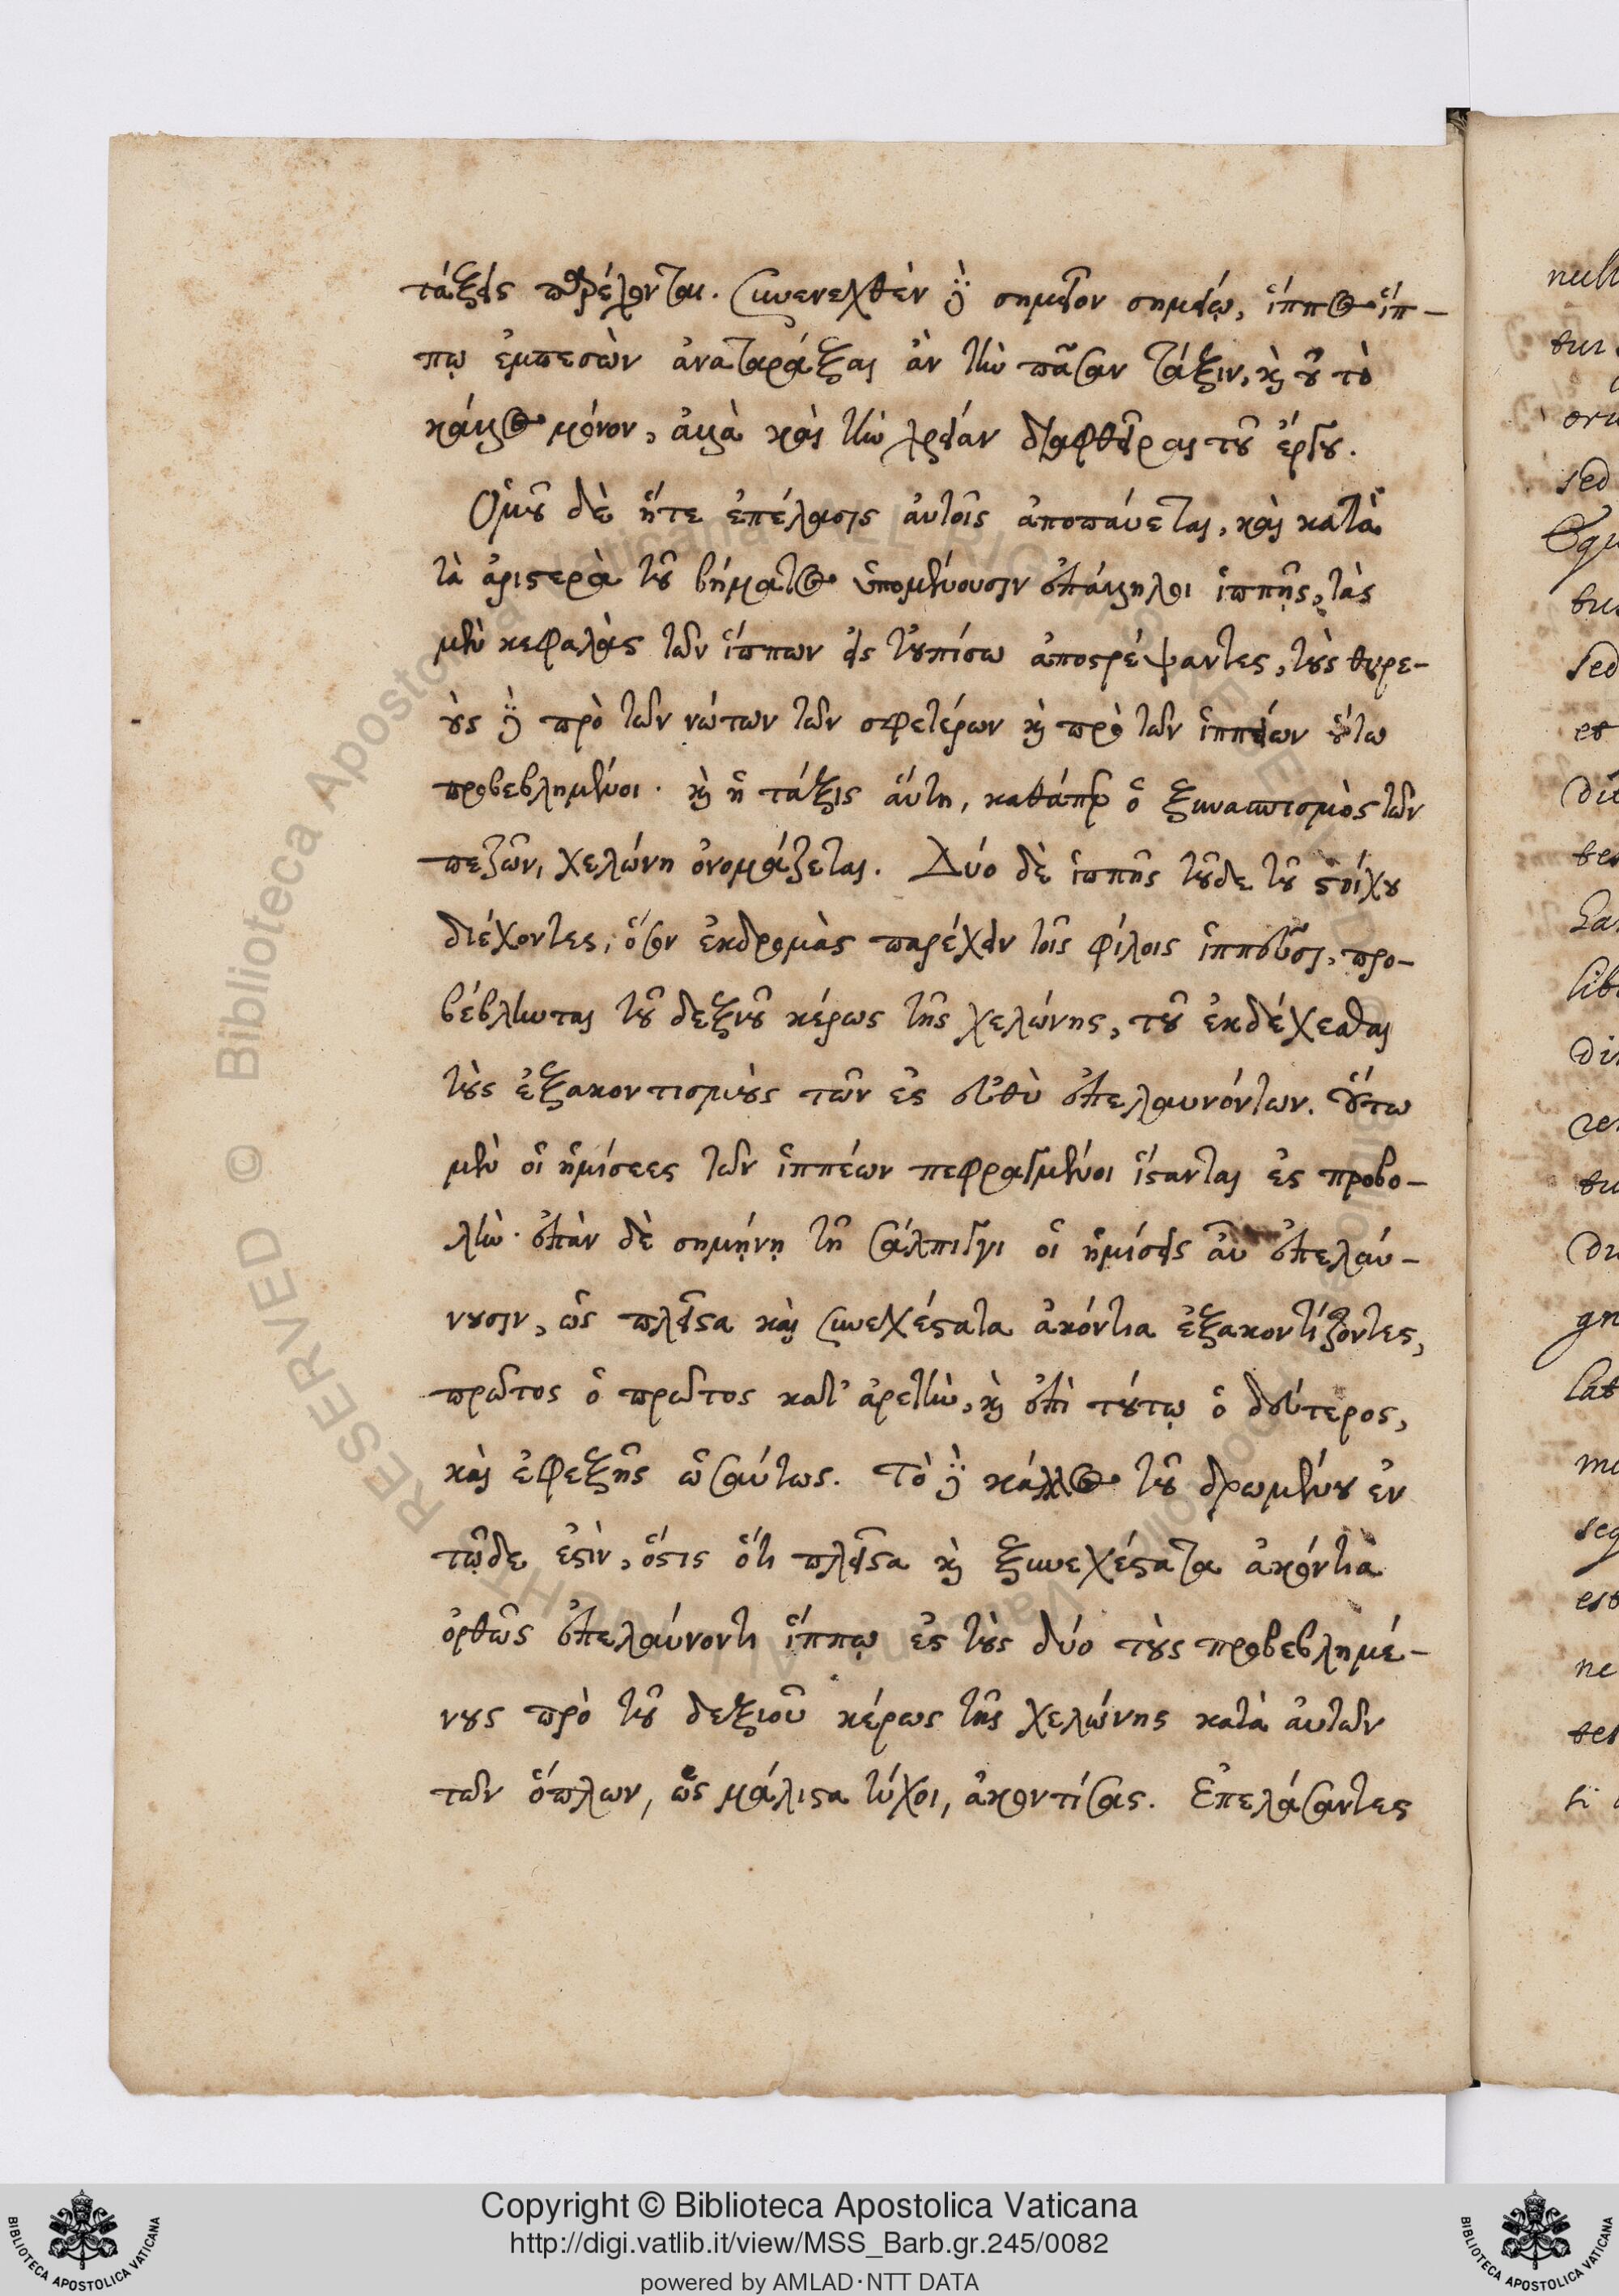 τάξεις παρέλκονται. συνενεχθὲν δὲ σημεῖον σημείῳ, ἵππος ἵπ-
πῳ ἐμπεσὼν ἀναταράξαι ἂν τὴν πᾶσαν τάξιν, καὶ οὐ τὸ
κάλλος μόνον, ἀλλὰ καὶ τὴν χρείαν διαφθεῖραι τοῦ ἔργου.
δὲ ἥτε ἐπέλασις αὐτοῖς ἀποπαύεται, καὶ κατὰ
τὰ ἀριστερὰ τοῦ βήματος ὑπομένουσιν ἐπάλληλοι ἱππῆς, τὰς
μὲν κεφαλὰς τῶν ἵππων εἰς τοὐπίσω ἀποστρέψαντες, τοὺς θυρε-
οὺς δὲ πρὸ τῶν νώτων τῶν σφετέρων καὶ πρὸ τῶν ἱππέων οὕτω
προβεβλημένοι. καὶ ἡ τάξις αὕτη, καθάπερ ὁ ξυνασπισμὸς τῶν
πεζῶν, χελώνη ὀνομάζεται. Δύο δὲ ἱππῆς τοῦδε τοῦ στοίχου
διέχοντες, ὅσον ἐκδρομὰς παρέχειν τοῖς φίλοις ἱππεῦσι, προ-
βέβληνται τοῦ δεξιοῦ κέρως τῆς χελώνης, τοῦ ἐκδέχεσθαι
τοὺς ἐξακοντισμοὺς τῶν ἐς εὐθὺ ἐπελαυνόντων. οὕτω
μὲν οἱ ἡμίσεες τῶν ἱππέων πεφραγμένοι ἵστανται ἐς προβο-
λήν. ἐπὰν δὲ σημήνῃ τῇ σάλπιγγι οἱ ἡμίσεις αὖ ἐπελαύ-
νουσιν, ὡς πλεῖστα καὶ συνεχέστατα ἀκόντια ἐξακοντίζοντες,
πρῶτος ὁ πρῶτος κατ' ἀρετὴν, καὶ ἐπὶ τούτῳ ὁ δεύτερος,
καὶ ἐφεξῆς ὡσαύτως. Τὸ δὲ κάλλος τοῦ δρωμένου ἐν
τῷδε ἐστὶν, ὅστις ὅτι πλεῖστα καὶ ξυνεχέστατα ἀκόντια
ὀρθῶς ἐπελαύνοντι ἵππῳ ἐς τοὺς δύο τοὺς προβεβλημέ-
νους πρὸ τοῦ δεξιοῦ κέρως τῆς χελώνης κατὰ αὐτῶν
τῶν ὅπλων, ὡς μάλιστα τύχοι, ἀκοντίσας. Ἐπελάσαντες
null
tur
sed
Equ
sed
et
lib
gn
lat
est
ne
Copyright © Biblioteca Apostolica Vaticana
http://digi.vatlib.it/view/MSS_Barb.gr.245/0082
powered by AMLAD·NTT DATA
BIBLIOTECA APOSTOLICA VATICANA
BIBLIOTECA APOSTOLICA VATICANA